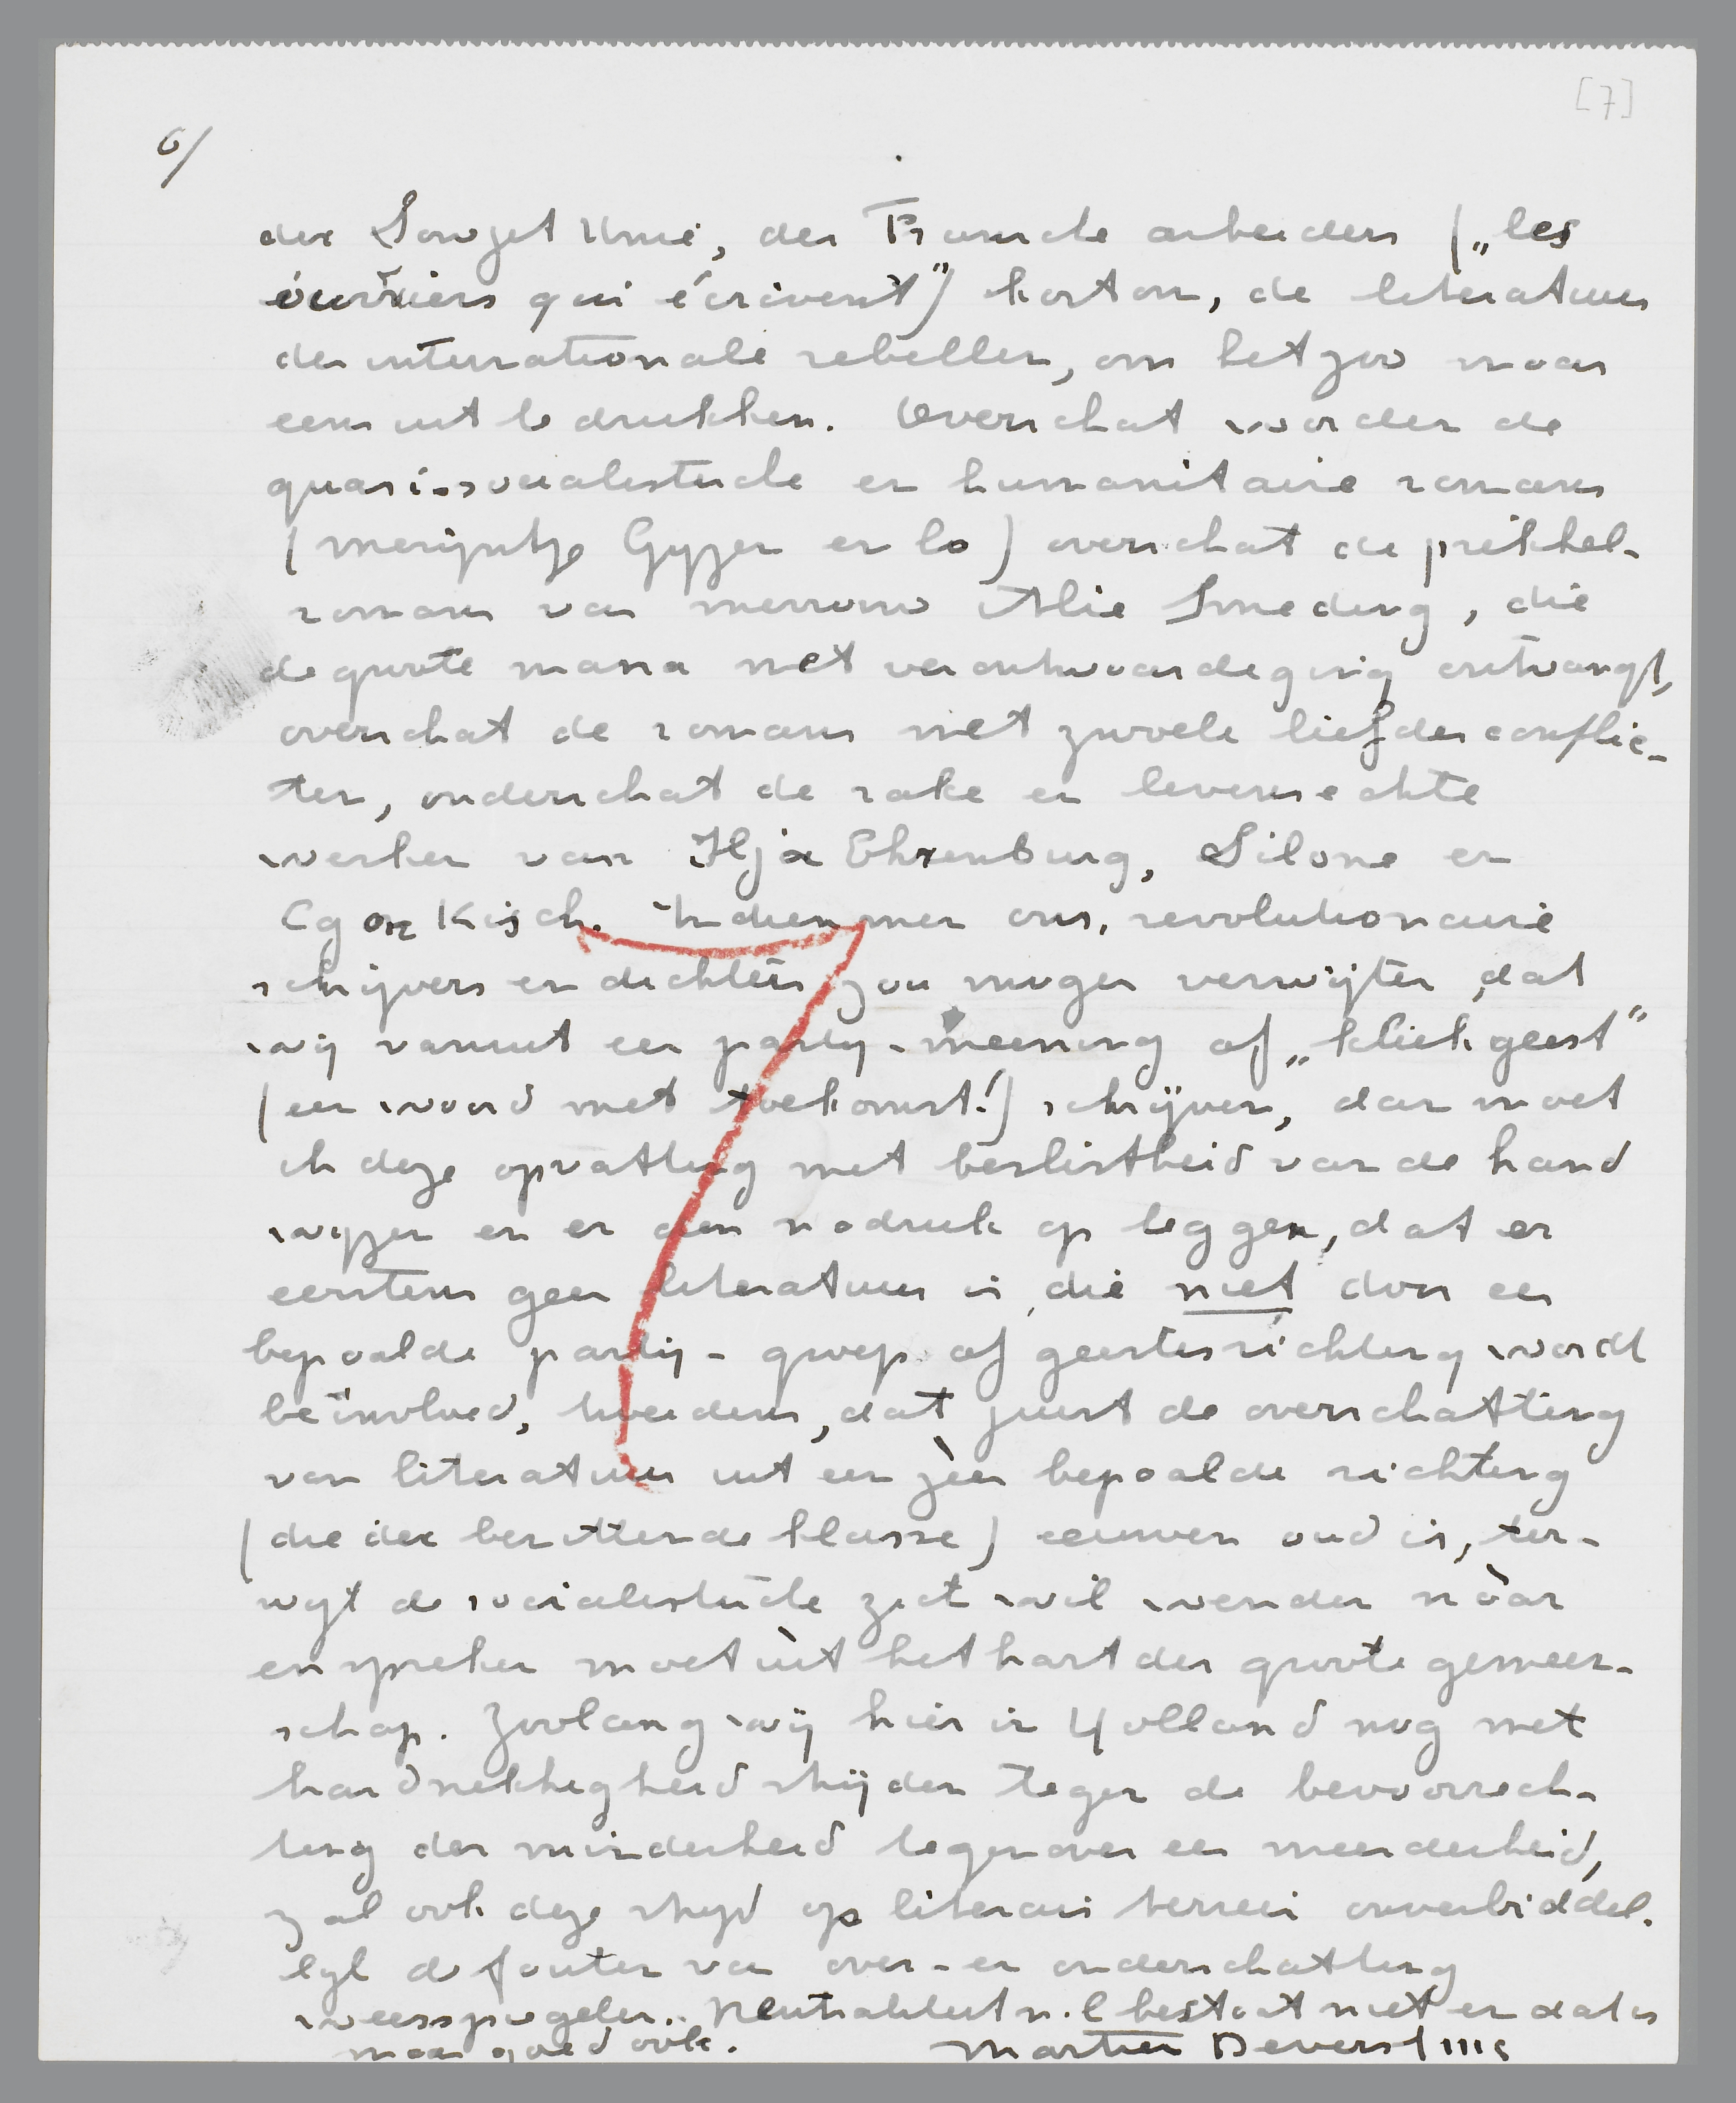 [7]
6/
der Sowjet Unie, der Fransche arbeiders („les
ouvriers qui écrivent”) kortom, de literatuur
der internationale rebellen, om het zoo maar
eens uit te drukken. Overschat worden de
quasi-socialistische en humanitaire romans
(Merijntje Gijzen en Co) overschat de prikkel-
romans van mevrouw Alie Smeding, die
de groote massa met verontwaardiging ontvangt,
overschat de romans met zwoele liefdesconflic-
ten, onderschat de rake en levensechte
werken van Ilja Ehrenburg, Silone en
Egon Kisch. Indien men ons, revolutionaire
schrijvers en dichters zou mogen verwijten, dat
wij vanuit een partij-meening of „kliekgeest”
(een woord met toekomst!) schrijven, dan moet
ik deze opvatting met beslistheid van de hand
wijzen en er den nadruk op leggen, dat er
eerstens geen literatuur is, die niet door een
bepaalde partij- groep of geestesrichting wordt
beïnvloed, tweedens, dat juist de overschatting
van literatuur uit een zéér bepaalde richting
(die der bezittende klasse) eeuwen oud is, ter-
wijl de socialistische zich wil wenden nààr
en spreken moet ùit het hart der groote gemeen-
schap. Zoolang wij hier in Holland nog met
hardnekkigheid strijden tegen de bevoorrech-
ting der minderheid tegenover een meerderheid,
zal ook deze strijd op literair terrein onverbiddel-
lijk de fouten van over- en onderschatting
weerspiegelen.. Neutraliteit n.l bestaat niet en dat is
maar goed ook. Martien Beversluis